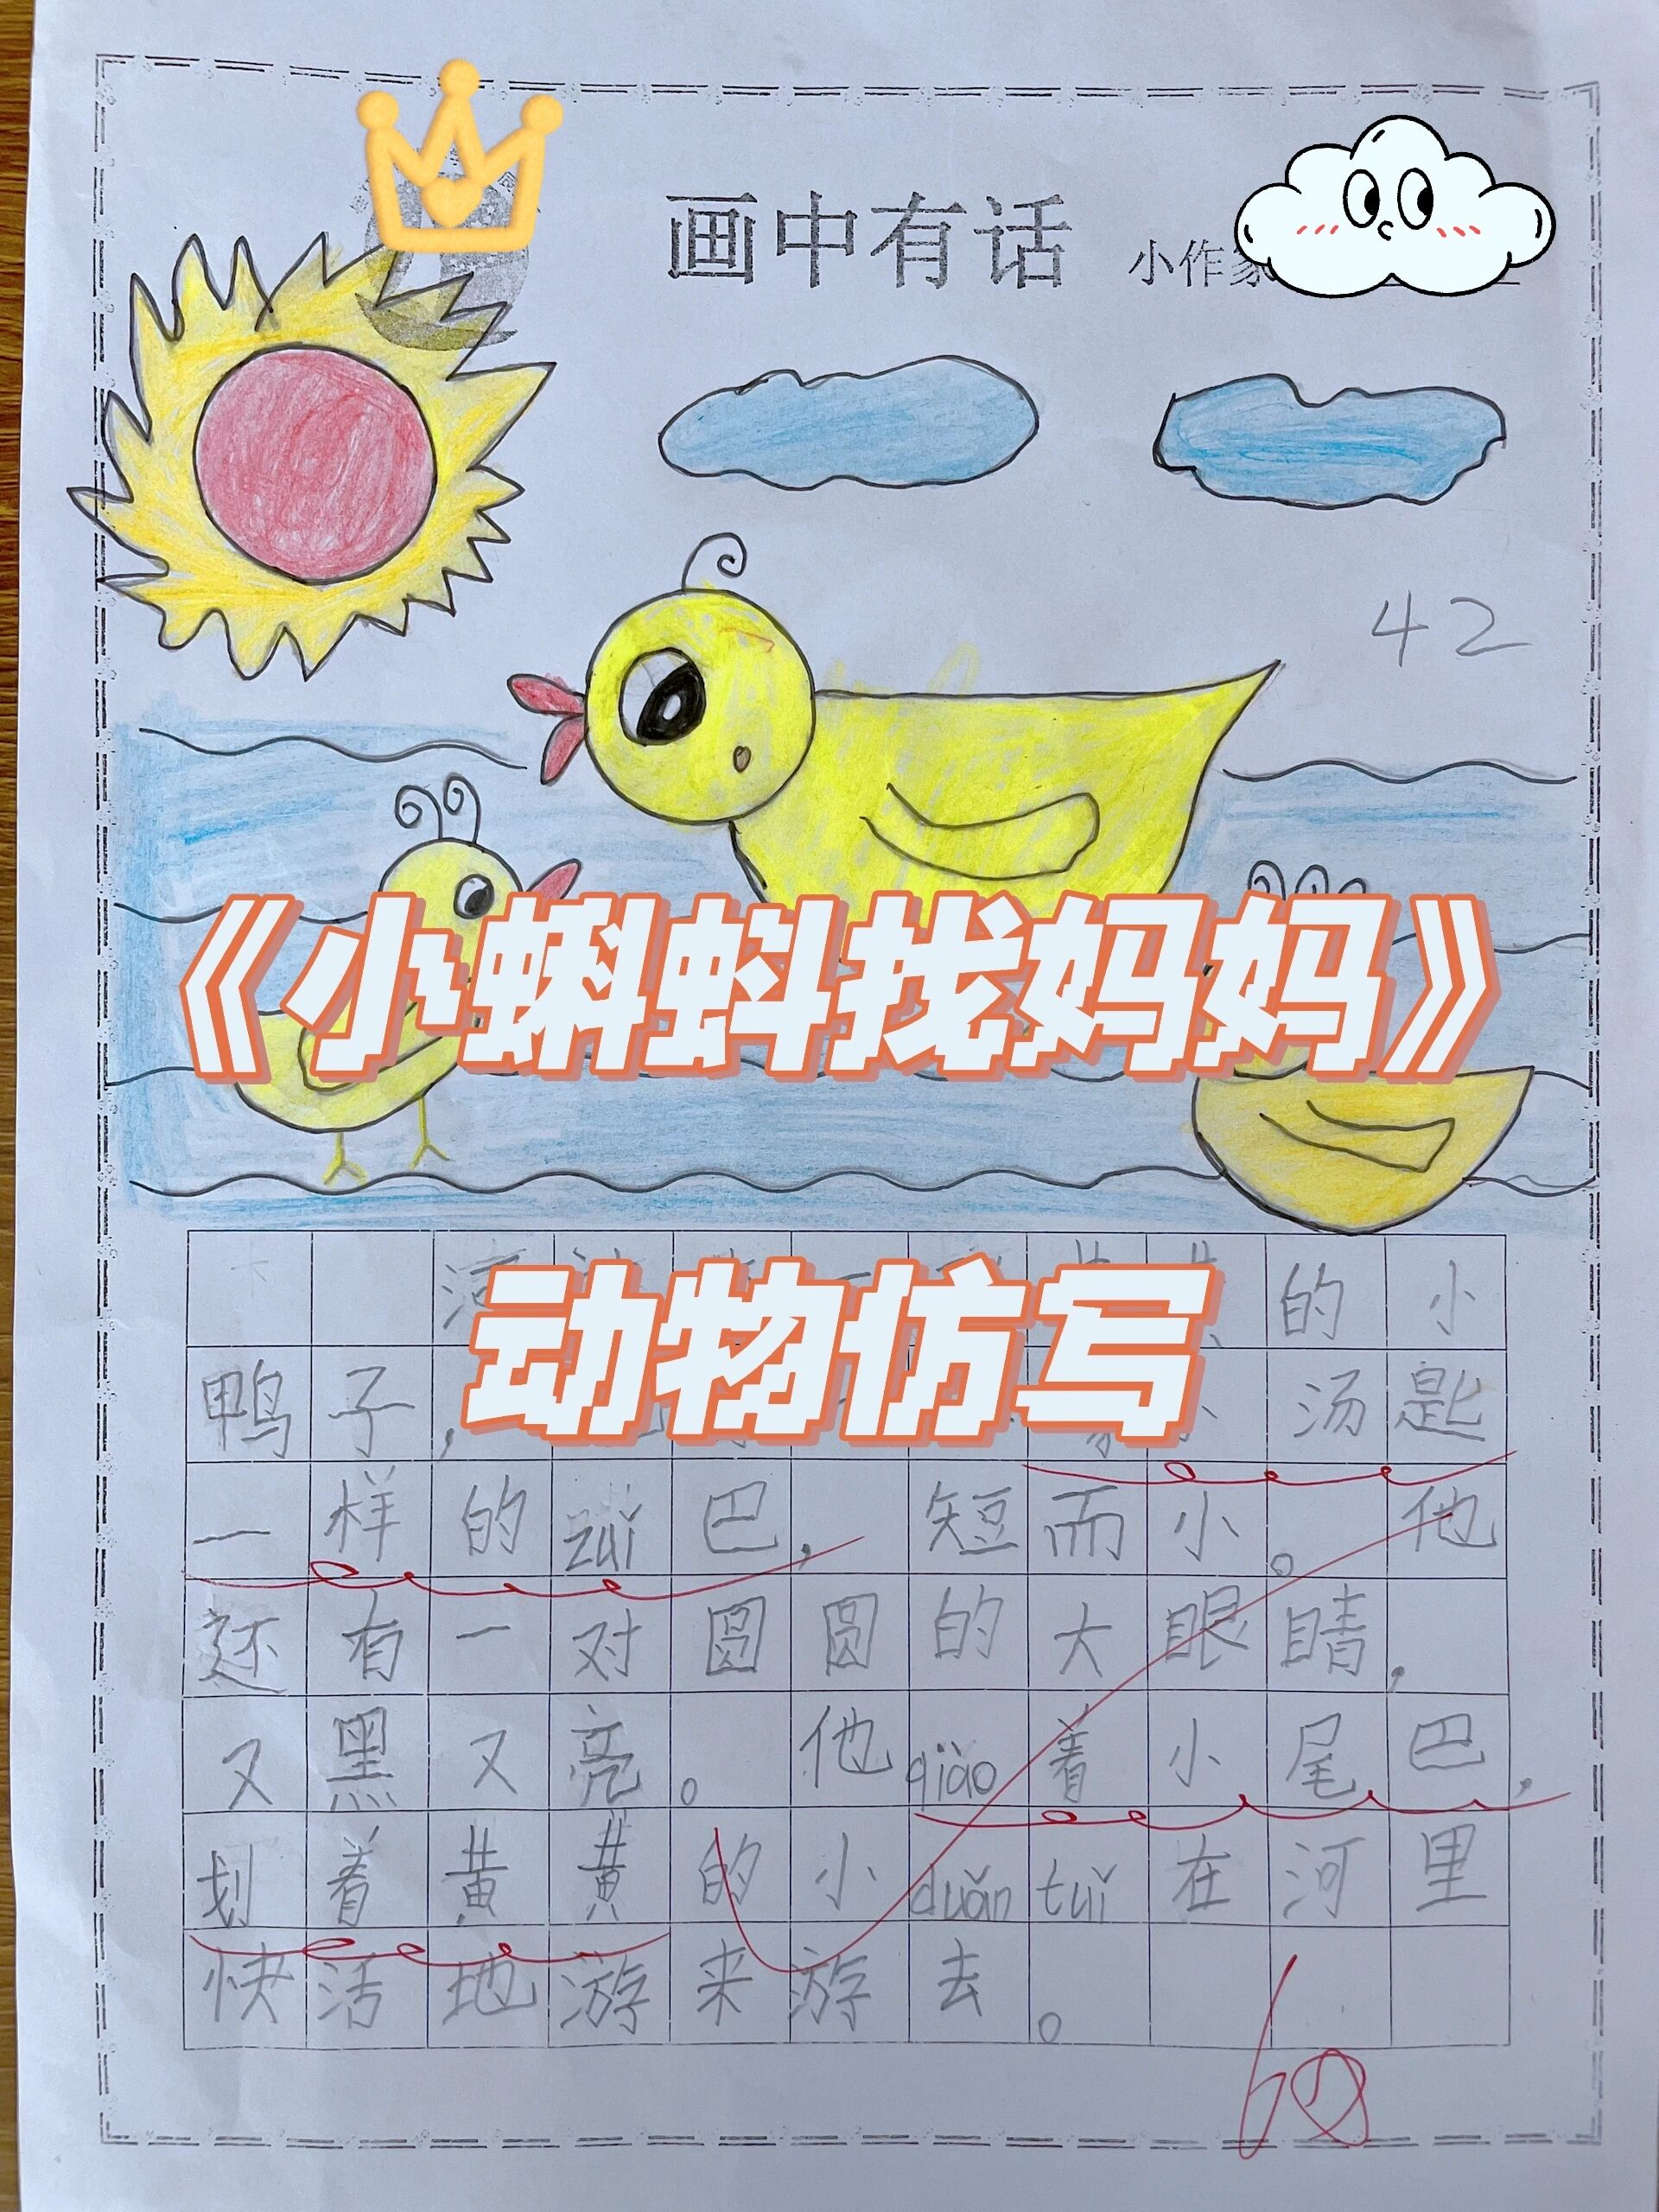 画中有话 小作家
42
《小蝌蚪找妈妈》
动物仿写
的小
鸭子，汤匙
一样的zuǐ巴，短而小。他
还有一对圆圆的大眼睛，
又黑又亮。他qiào着小尾巴，
划着黄黄的小duǎn tuǐ在河里
快活地游来游去。